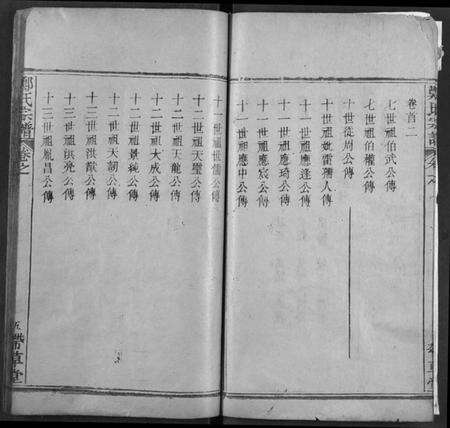 卷首二
七世祖伯武公傳
七世祖伯權公傳
十世從周公傳
十世妣雷孺人傳
十一世祖應逢公傳
十一世祖應琦公傳
十一世祖應宸公傳
十一世祖應中公傳
十一世祖世儒公傳
十二世祖天璽公傳
十二世祖天龍公傳
十二世祖大成公傳
十二世祖景婉公傳
十二世祖天嗣公傳
十三世祖洪猷公傳
十三世祖洪亮公傳
十三世祖胤昌公傳
鄭氏宗譜
卷之
五
帶草堂